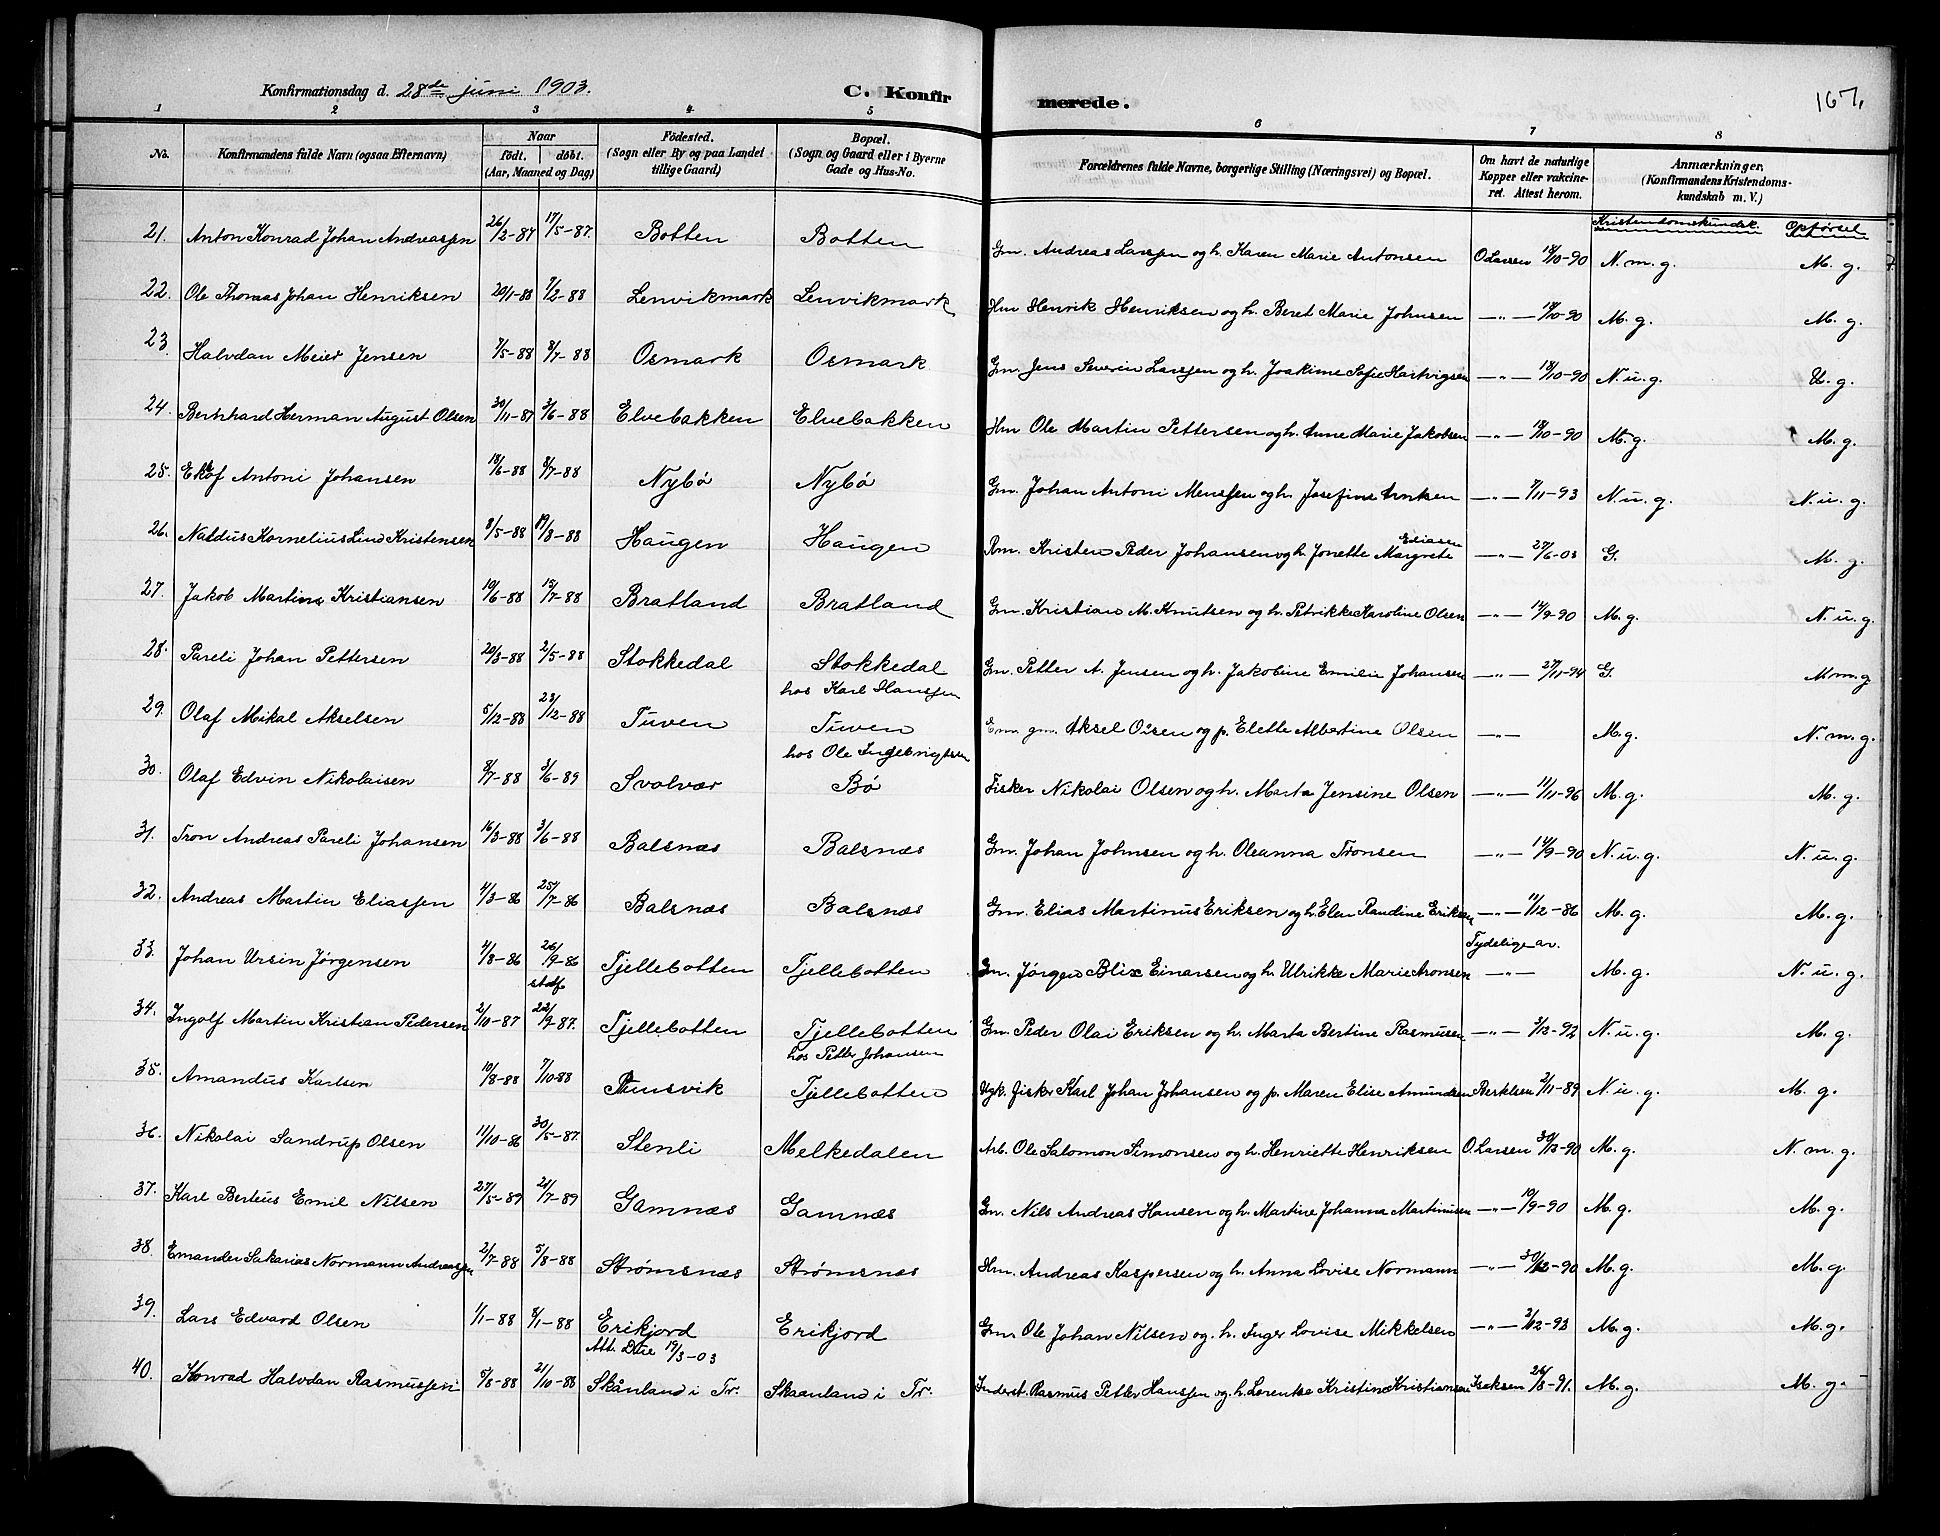 Konfirmationsdag d. 28de juni 1903.
C. Konfirmerede.
167.
1 2 3 4 5 6 7 8
No.
Konfirmandens fulde Navn (ogsaa Efternavn)
Naar
født. døbt.
(Aar, Maaned og Dag)
Fødested.
(Sogn eller By og paa Landet
tillige Gaard)
Bopæl.
(Sogn og Gaard eller i Byerne
Gade og Hus-No.
Forældrenes fulde Navne, borgerlige Stilling (Næringsvei) og Bopæl.
Om havt de naturlige
Kopper eller vakcine-
ret. Attest herom.
Anmærkninger.
(Konfirmandens Kristendoms-
kundskab m. V.)
Kristendomskundsk. Opførsel
21. Anton Konrad Johan Andreassen 26/2-87 17/5-87. Botten Botten Gm. Andreas Larssen og h. Karen Marie Antonsen O Larsen 18/10-90 N. m. g. M. g.
22. Ole Thomas Johan Henriksen 20/1-88 7/2-88 Lenvikmark Lenvikmark Hm Henrik Henriksen og h. Beret Marie Johnsen —"— 18/10-90 M. g. M. g.
23. Halvdan Meier Jensen 7/5-88 8/7-88 Osmark Osmark Gm. Jens Severin Larssen og h. Joakime Sofie Hartvigsen —"— 18/10-90 N. u. g. U. g.
24. Bernhard Herman August Olsen 30/11-87 3/6-88 Elvebakken Elvebakken Hm Ole Martin Pettersen og h. Anne Marie Jakobsen —"— 18/10-90 M. g. M. g.
25. Antoni Johansen 18/6-88 8/7-88 Nybø Nybø Gm. Johan Antoni Menssen og h. Josefine Arntsen —"— 7/11-93 N. u. g. N. u. g.
26. Naldus Kornelius Lind Kristensen 8/5-88 19/8-88 Haugen Haugen Rm. Kristen Peder Johansen og h. Jonette Margrete Eliassen —"— 27/6-03 G. M. g.
27. Jakob Martinus Kristiansen 10/6-88 15/7-88 Bratland Bratland Gm. Kristian M. Knutsen og h. Petrikke Karoline Olsen —"— 14/9-90 M. g. N. u. g.
28. Pareli Johan Pettersen 20/3-88 2/5-88 Stokkedal Stokkedal Gm. Petter A. Jensen og h. Jakobine Emilie Johansen —"— 27/11-94 G. M m. g.
29. Olaf Mikal Akselsen 5/12-88 23/12-88 Tuven hos Karl Hanssen
Tuven Em. gm. Aksel Olsen og p. Elette Albertine Olsen —"— M. g. N. m. g.
30. Olaf Edvin Nikolaisen 8/7-88 3/6-89 Svolvær hos Ole Ingebrigtsen
Bø Fisker Nikolai Olsen og h. Marta Jensine Olsen —"— 11/11-96 M. g. M. g.
31. Tron Andreas Pareli Johansen 16/3-88 3/6-88 Balsnæs Balsnæs Gm. Johan Johnsen og h. Oleanna Tronsen —"— 14/9-90 N. u. g. N. u. g.
32. Andreas Martin Eliassen 4/3-86 25/7-86 Balsnæs Balsnæs Gm. Elias Martinus Eriksen og h. Elen Randine Eriksen —"— 11/12-86 M. g. M. g.
33. Johan Ursin Jørgensen 4/8-86 26/9-86 stadf. Tjellebotten Tjellebotten Gm. Jørgen Blix Einarsen og h. Ulrikke Marie Aronsen Tydelige ar. —"— M. g. N. u. g.
34. Ingolf Martin Kristian Pedersen 2/10-87 22/9-87. Tjellebotten Tjellebotten Gm. Peder Olai Eriksen og h. Marta Bertine Rasmussen —"— 3/13-92 N. u. g. M. g.
35. Amandus Karlsen 10/8-88 7/10-88 hos Petter Johansen
Tjellebotten Ugk. fisker Karl Johan Johansen og p. Maren Elise Amundsen Bertelsen 2/11-89 N. u. g. M. g.
36. Nikolai Sandrup Olsen 11/10-86 30/5-87. Stenli Melkedalen Arb. Ole Salomon Simonsen og h. Henriette Henriksen O. Larsen 30/13-90 M. g. N. m. g.
37. Karl Berteus Emil Nilsen 27/5-89 21/7-89 Gamnæs Gamnæs Gm. Nils Andreas Hansen og h. Martine Johanna Martinusen —"— 10/9-90 M. g. M. g.
38. Emander Sakarias Normann Andreassen 2/7-88 5/8-88 Strømsnæs Strømsnæs Hm. Andreas Kaspersen og h. Anna Lovise Normann —"— 30/12-90 M. g. M. g.
39. Lars Edvard Olsen 1/1-88 8/1-88 Erikjord Erikjord Gm. Ole Johan Nilsen og h. Inger Lovise Mikkelsen —"— 2/12-93 M. g. M. g.
40. Konrad Halvdan Rasmussen 5/8-88 21/10-88 Att. 17/3-03
Skånland i Tr. Skaanland i Tr. Inderst. Rasmus Petter Hanssen og h. Lorentse Kristine Kristiansen Isaksen 26/8-91. M. g. M. g.